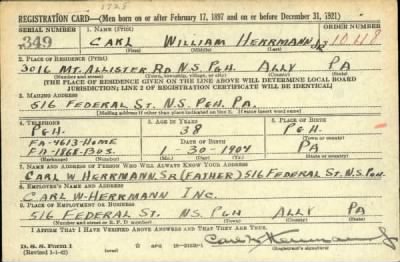 1728
REGISTRATION CARD—(Men born on or after February 17, 1897 and on or before December 31, 1921)
SERIAL NUMBER 1. NAME (Print) ORDER NUMBER
349 CARL WILLIAM HERRMANN JR 10418
(First) (Middle) (Last)
2. PLACE OF RESIDENCE (Print)
3016 MT. ALLISTER RD N.S. PGH. ALLY PA
(Number and street) (Town, township, village, or city) (County) (State)
[THE PLACE OF RESIDENCE GIVEN ON THE LINE ABOVE WILL DETERMINE LOCAL BOARD
JURISDICTION; LINE 2 OF REGISTRATION CERTIFICATE WILL BE IDENTICAL]
3. MAILING ADDRESS
516 FEDERAL ST. N.S. PGH. PA.
[Mailing address if other than place indicated on line 2. If same insert word same]
4. TELEPHONE 5. AGE IN YEARS 6. PLACE OF BIRTH
PGH. 38 PGH.
FA-4613-HOME DATE OF BIRTH (Town or county)
FD-1868-BUS. 1-30-1904 PA
(Exchange) (Number) (Mo.) (Day) (Yr.) (State or country)
7. NAME AND ADDRESS OF PERSON WHO WILL ALWAYS KNOW YOUR ADDRESS
CARL W HERRMANN, SR (FATHER) 516 FEDERAL ST. N.S. PGH
8. EMPLOYER'S NAME AND ADDRESS
CARL W-HERRMANN INC.
9. PLACE OF EMPLOYMENT OR BUSINESS
516 FEDERAL ST. N.S. PGH ALLY PA
(Number and street or R. F. D. number) (Town) (County) (State)
I AFFIRM THAT I HAVE VERIFIED ABOVE ANSWERS AND THAT THEY ARE TRUE.
D. S. S. Form 1
(Revised 1-1-42) (over)
Carl W Herrmann Jr
(Registrant's signature)